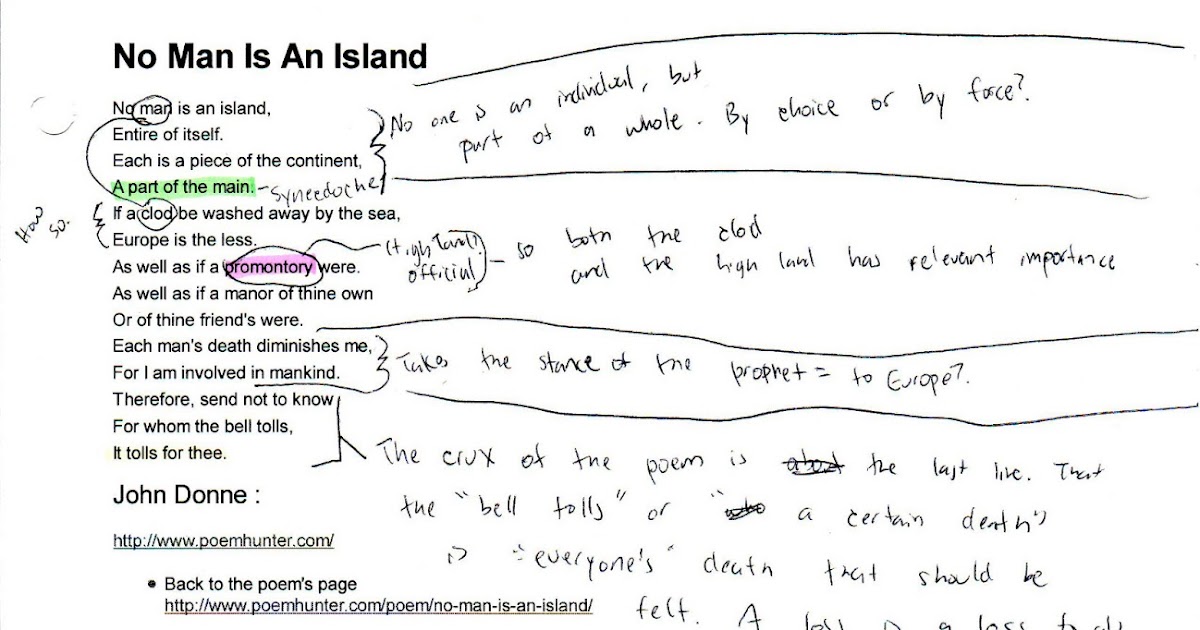 No Man Is An Island
No man is an island,
Entire of itself.
Each is a piece of the continent,
A part of the main. - Syneedoche
No one is an individual, but
part of a whole. By choice or by force?
How so.
If a clod be washed away by the sea,
Europe is the less.
As well as if a promontory were.
(High land)
official
- so both the clod
and the high land has relevant importance
As well as if a manor of thine own
Or of thine friend's were.
Each man's death diminishes me,
For I am involved in mankind.
Takes the stance of the prophet = to Europe?
Therefore, send not to know
For whom the bell tolls,
It tolls for thee.
The crux of the poem is about the last line. That
the "bell tolls" or " a certain death"
is "everyone's" death that should be
felt. A loss is a loss to all
John Donne :
http://www.poemhunter.com/
• Back to the poem's page
http://www.poemhunter.com/poem/no-man-is-an-island/